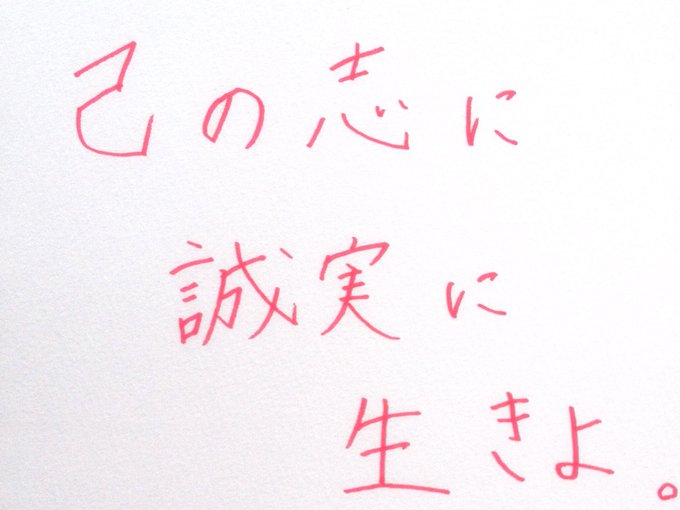 己の志に
誠実に
生きよ。